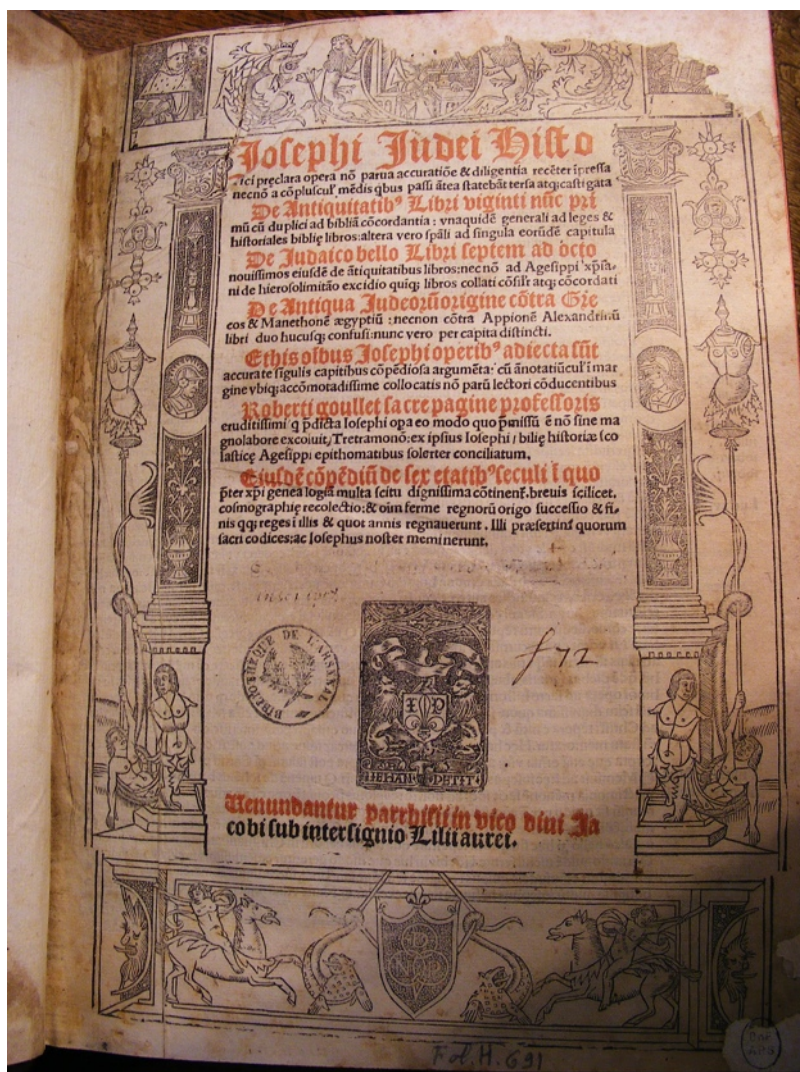 Josephi Judei Histo
rici pręclara opera nō parua accuratiōe & diligentia recēter īpressa
necnō a cōpluscul' mēdis qbus passi ātea statebāt tersa atq; castigata
De Antiquitatibꝰ Libri viginti nūc pri
mū cū duplici ad bibliā cōcordantia : vnaquidē generali ad leges &
historiales biblię libros: altera vero spāli ad singula eorūdē capitula
De Judaico bello Libri septem ad octo
nouissimos eiusdē de ātiquitatibus libros: necnō ad Agesippi xp̄ia-
ni de hierosolimitāo excidio quiq; libros collati cōsil'r atq; cōcordati
De Antiqua Judeorū origine cōtra Gre
cos & Manethonē ægyptiū : necnon cōtra Appionē Alexandrinū
libri duo hucusq; confusi: nunc vero per capita distincti.
Et his oībus Josephi operibꝰ adiecta sūt
accurate sīgulis capitibus cōpēdiosa argumēta: cū ānotatiūcul' ī mar
gine vbiq; accōmotadissime collocatis nō parū lectori cōducentibus
Roberti goullet sacre pagine professoris
eruditissimi q p̄dicta Iosephi opa eo modo quo p̄missū ē nō sine ma
gnolabore excoiuit, Tretramonō: ex ipsius Iosephi / bilię historiæ sco
lasticę Agesippi epithomatibus solerter conciliatum.
Eiusdē cōpēdiū de sex etatibꝰ seculi ī quo
p̄ter xp̄i genealogiā multa scitu dignissima cōtinent'. breuis scilicet.
cosmographię recolectio: & oīm ferme regnorū origo successio & fi-
nis qq; reges ī illis & quot annis regnauerunt. Illi præsertinī quorum
sacri codices: ac Iosephus noster meminerunt.
BIBLIOTHEQUE DE L'ARSENAL
f 72
I P
IEHAN PETIT
Uenundantur parrhisii in vico diui Ja
cobi sub intersignio Lilii aurei.
Fol. H. 691